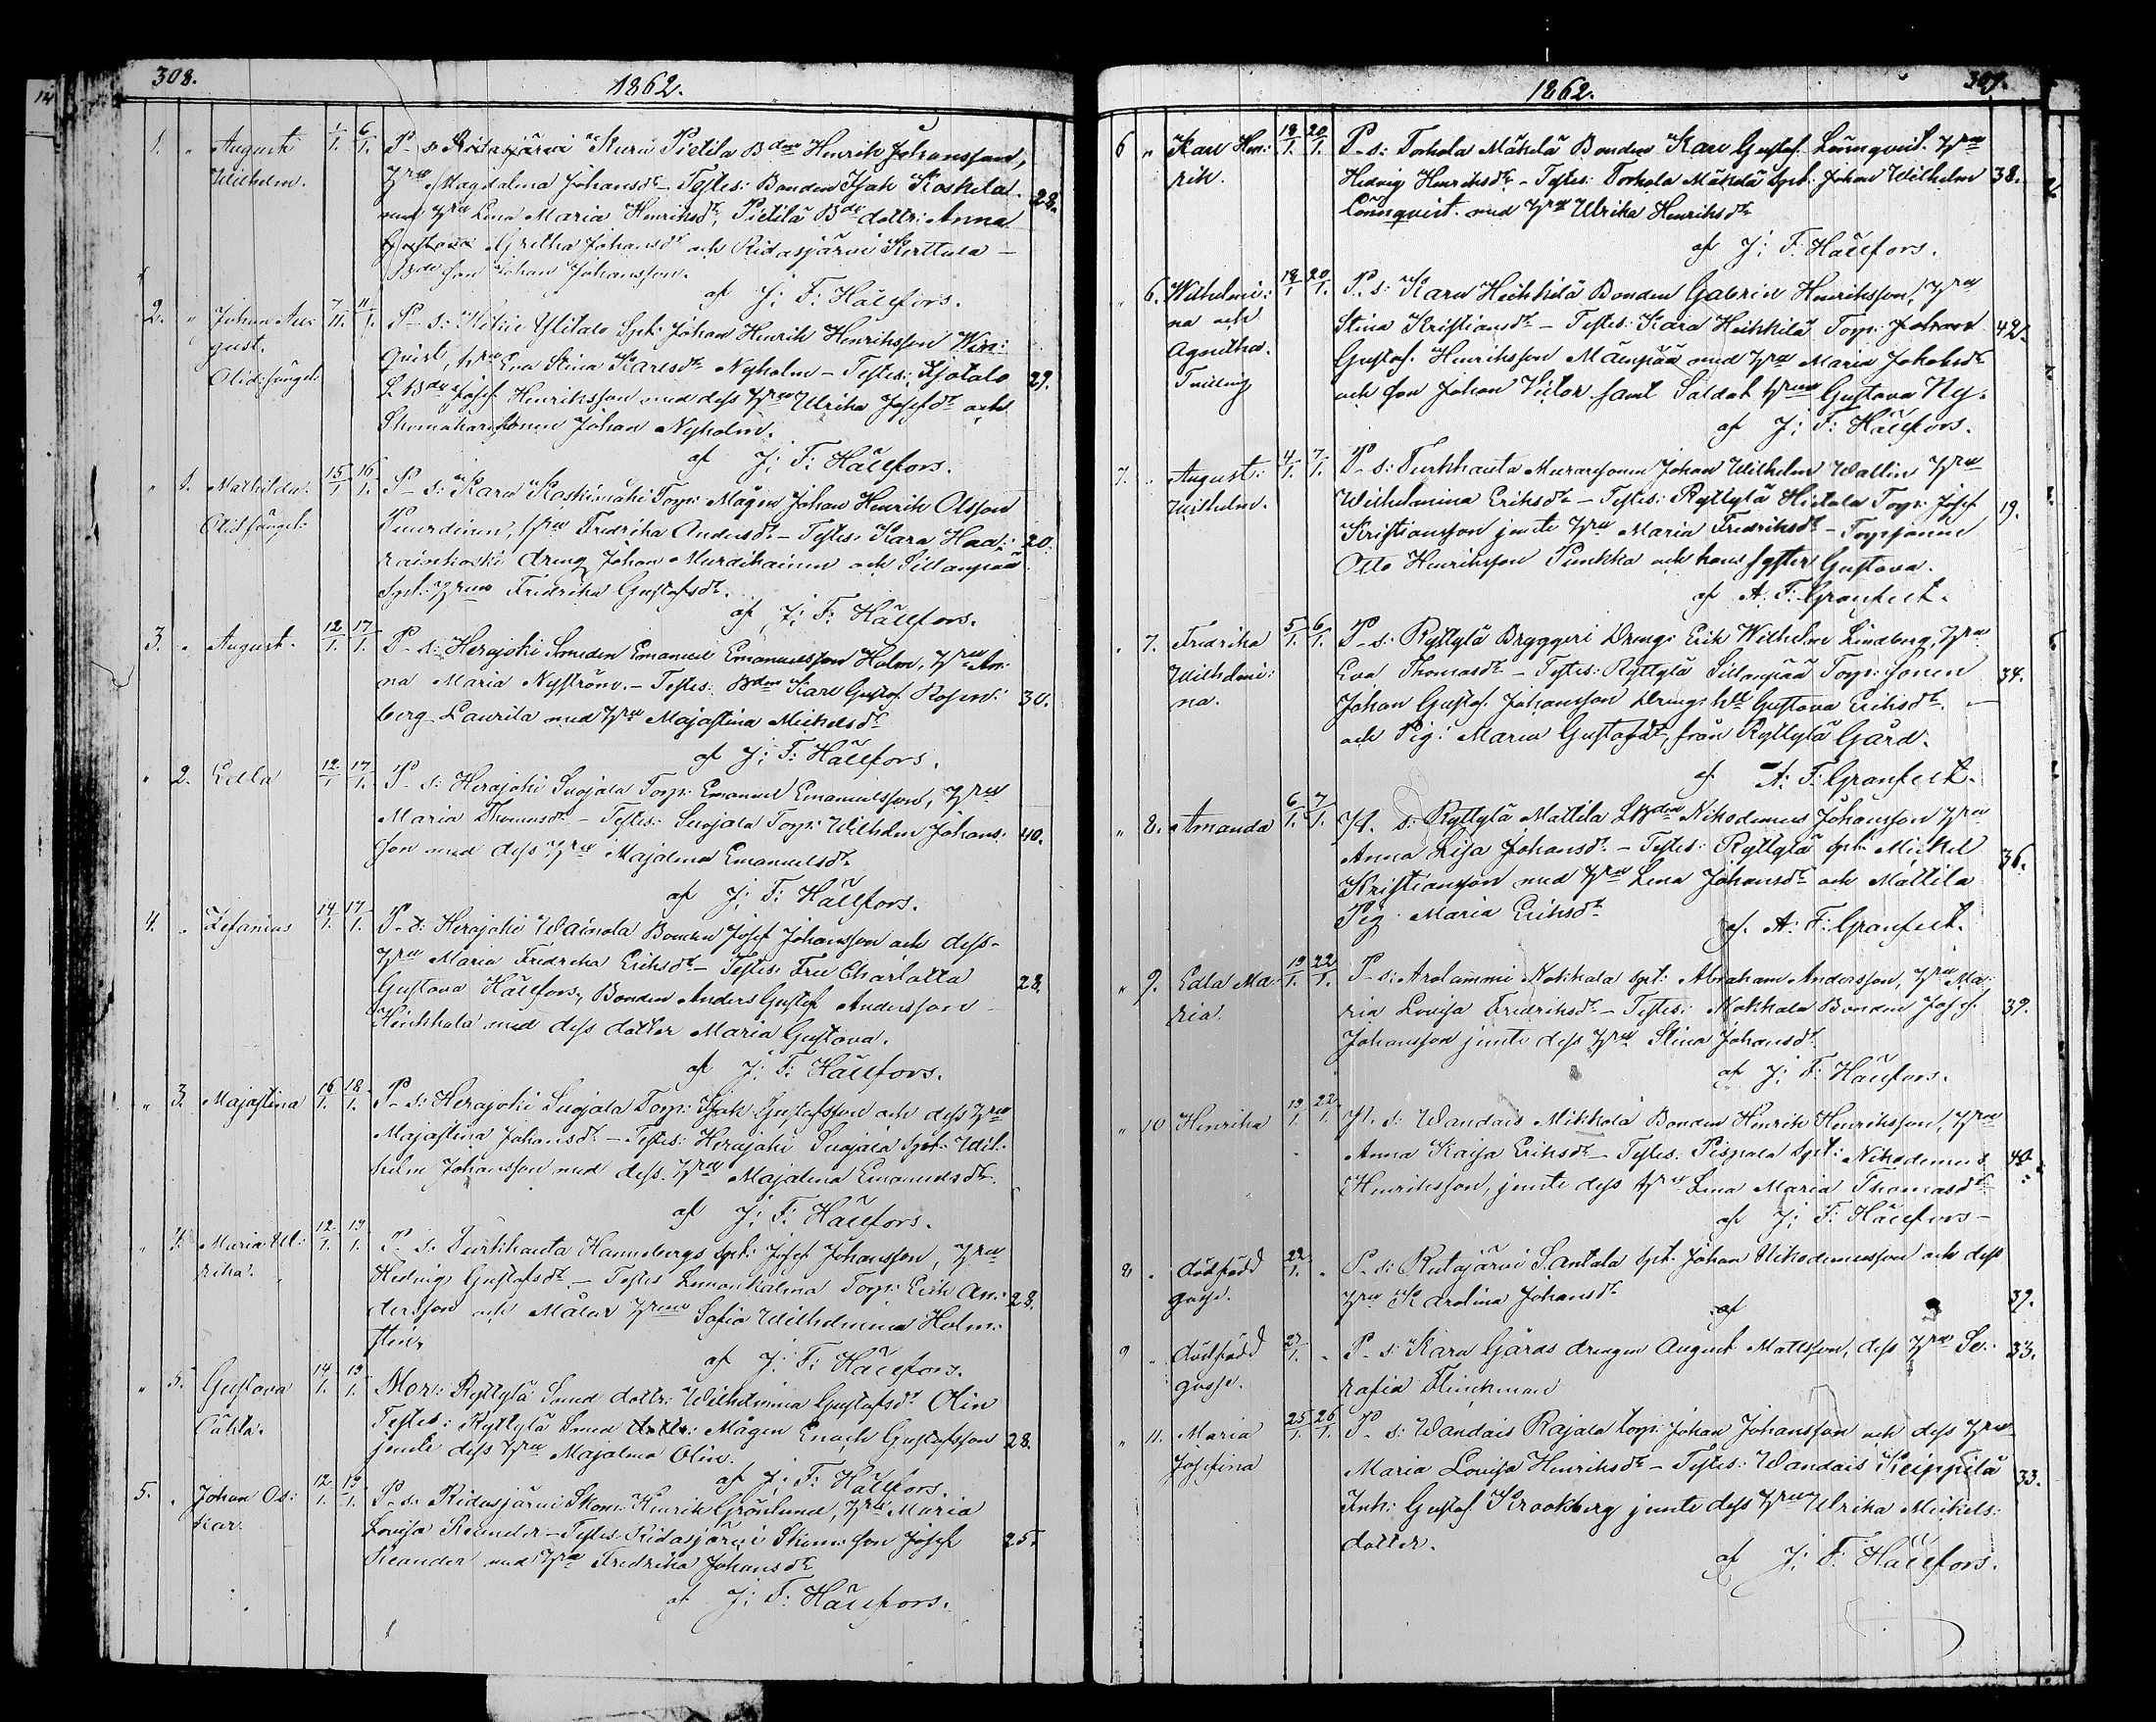 308.
1862.
1. " August 1/1. 6/1. P. s. Ridasjärvi Kuru Pietilä Bden Henrik Johansson,
Wilhelm. Hru Magdalena Johansdr - Testes: Bonden Isak Koskela 28.
med Hru Lena Maria Henriksdr, Pietilä Bde dottr: Anna
Gustava Gretha Johansdr och Ridasjärvi Kerttula -
Bde son Johan Johansson.
af J: F: Hällfors.
2. " Johan Au: 7/11. 11/1. P. s: Ylitalo Spt: Johan Henrik Henriksson Win:
gust. qvist, Hru Eva Stina Karlsdr Nyholm - Testes: Isotalo 29.
Olid: fängel: Bde Josef Henriksson med dess Hru Ulrika Josefdr och
Skomakaresonen Johan Nyholm.
af J: F: Hällfors.
" 1. Mathilda. 15/1 16/1. P. s: Kara Koskimäki Torp: Mågen Johan Henrik Olsson
Olid: fängel: Hru Fredrika Andersdr - Testes: Kara Haa: 20.
rainkoski dreng Johan Murdikainen och Sillanpää
Spt: Hrus Fredrika Gustafsdr.
af J: F: Hällfors.
3. " August. 12/1. 17/1. P. s: Herajoki Smeden Emanuel Emanuelsson Holm, Hru An:
na Maria Nyström. - Testes: Bden Karl Gustaf Rosen: 30.
berg Laurila med Hru Majastina Mickelsdr
af J: F: Hällfors.
" 2. Edla 12/1 17/1. P. s: Herajoki Suojala Torp: Emanuel Emanuelsson, Hru
Maria Thomasdr - Testes: Suojala Torp: Wilhelm Johans: 40.
son med dess Hru Majalena Emanuelsdr
af J: F: Hällfors.
4. " Zefanias 14/1. 17/1. P. s: Herajoki Wäinölä Bonden Josef Johansson och dess
Hru Maria Fredrika Eriksdr - Testes: Fru Charlotta
Gustava Hällfors, Bonden Anders Gustaf Andersson 28.
med dess dotter Maria Gustava.
af J: F: Hällfors.
" 3. Majastina 16/1. 18/1. P. s: Herajoki Suojala Torp: Isak Gustafsson och dess Hru
Majastina Johansdr - Testes: Herajoki Suojala Spt: Wil:
helm Johansson med dess Hru Majalena Emanuelsdr
af J: F: Hällfors.
" 4. Maria Ul: 12/1. 19/1. P. s: Turkhauta Hannebergs Spt: Josef Johansson, Hru
rika. Hedvig Gustafsdr - Testes Torp: Erik An: 28.
dersson och Målar Hrus Sofia Wilhelmina Holm:
stén,
af J: F: Hällfors.
" 5. Gustava 14/1. 19/1. Mor: Ryttylä Smed dottr: Wilhelmina Gustafsdr Olin
Cäkla. Testes: Ryttylä Smed Mågen Enoch Gustafsson 28.
jemte dess Hru Majalena Olin.
af J: F: Hällfors.
5. " Johan Os: 12/1. 19/1. P. s. Ridasjärvi Skom: Henrik Grönlund, Hru Maria
kar. Lovisa Reander - Testes: Ridasjärvi Skom: son Josef 25.
Reander med Hru Fredrika Johansdr
af J: F: Hällfors.
309.
1862.
6 " Karl Hen: 18/1. 20/1. P. s: Torhola Mäkelä Bonden Karl Gustaf Lönnqvist Hru
rik. Hedvig Henriksdr - Testes: Torhola Mäkelä Spt: Johan Wilhelm 38.
Lönnqvist med Hru Ulrika Henriksdr
af J: F: Hällfors.
" 6. Wilhelmi: 18/1 20/1. P. s: Kara Heikkilä Bonden Gabriel Henriksson, Hru
na och Stina Kristiansdr - Testes: Kara Heikkilä Torp: Johan 42.
Agnetha. Gustaf Henriksson Mäenpää med Hru Maria Jakobsdr
Tvilling och son Johan Victor samt Soldat Hrus Gustava Ny.
af J: F: Hällfors.
7. " August: 4/1. 7/1. P. s: Turkhauta Muraresonen Johan Wilhelm Wallin Hru
Wilhelm. Wilhelmina Eriksdr - Testes: Ryttylä Hietala Torp: Josef 19.
Kristiansson jemte Hru Maria Fredriksdr - Torpsonen
Otto Henriksson Punkka och hans syster Gustava.
af A: F: Granfelt.
" 7. Fredrika 5/1. 6/1. P. s: Ryttylä Bryggeri Dreng: Erik Wilhelm Lindberg, Hru
Wilhelmi: Eva Thomasdr - Testes: Ryttylä Sillanpää Torp: sonen 34.
na. Johan Gustaf Johansson Dreng: Gustava Eriksdr
och Pig: Maria Gustafsdr, från Ryttylä Gård.
af A: F: Granfelt.
" 8. Amanda 6/1. 7/1. P. s: Ryttylä Mattila LBden Nikodemus Johansson Hru
Anna Lisa Johansdr - Testes: Ryttylä Spt: Mickel 36.
Kristiansson med Hru Lena Johansdr och Mattila
Pig Maria Eriksdr
af. A: F: Granfelt.
" 9. Edla Ma: 19/1. 22/1. P. s: Arolammi Nokkala Spt: Abraham Andersson, Hru Ma:
ria. ria Lovisa Fredriksdr - Testes: Nokkala Bonden Josef 39.
Johansson jemte dess Hru Stina Johansdr
af J: F: Hällfors.
" 10 Henrika 19/1. 22/1. P. s: Wandais Mikkola Bonden Henrik Henriksson, Hru
Anna Kaisa Eriksdr - Testes: Pispala Spt: Nikodemus 40.
Henriksson, jemte dess Hru Lena Maria Thomasdr
af J: F: Hällfors -
8 " dödfödd 22/1. " P. s: Rutajärvi Santala Spt: Johan Nikodemusson och dess
gosse. Hru Karolina Johansdr 39.
af
9 " dödfödd 27/1. " P. s: Kara Gårds drengen August Mattsson, dess Hru Se: 33.
gosse. rafia Flinkman
" 11. Maria 25/1. 26/1. P. s: Wandais Rajala Torp: Johan Johansson och dess Hru
Josefina Maria Lovisa Henriksdr - Testes: Wandais Keippilä 33.
Inh: Gustaf Krookberg jemte dess Hru Ulrika Mickels:
dotter.
af J: F: Hällfors.